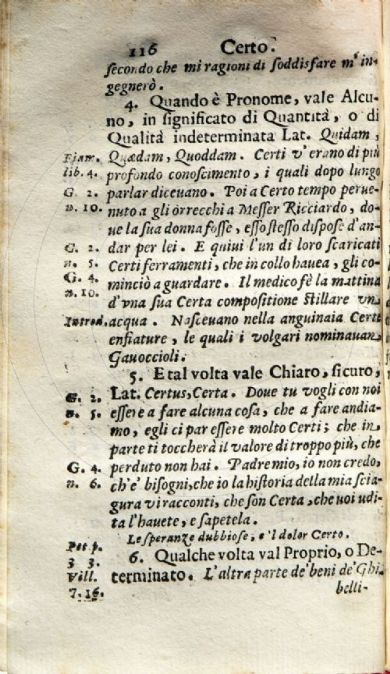 116 Certo.
secondo che mi ragioni di soddisfare m'in-
gegnerò.
4. Quando è Pronome, vale Alcu-
no, in significato di Quantità, o di
Qualità indeterminata Lat. Quidam,
Fiam. Quædam, Quoddam. Certi v'erano di più
lib. 4. profondo conoscimento, i quali dopo lungo
G. 2. parlar dicevano. Poi a Certo tempo perue-
n. 10. nuto a gli orrecchi a Messer Ricciardo, do-
ue la sua donna fosse, esso stesso dispose d'an-
G. 2. dar per lei. E quiui l'un di loro scaricati
n. 5. Certi ferramenti, che in collo hauea, gli co-
G. 4. minciò a guardare. Il medico fè la mattina
n. 10. d'vna sua Certa compositione stillare vn'
Introd. acqua. Nasceuano nella anguinaia Certe
enfiature, le quali i volgari nominauan
Gauoccioli.
5. E tal volta vale Chiaro, sicuro,
G. 2. Lat. Certus, Certa. Doue tu vogli con noi
n. 5. essere a fare alcuna cosa, che a fare andia-
mo, egli ci par essere molto Certi; che in
parte ti toccherà il valore di troppo più, che
G. 4. perduto non hai. Padre mio, io non credo,
n. 6. ch'e' bisogni, che io la historia della mia scia-
gura vi racconti, che son Certa, che voi udi-
ta l'hauete, e sapetela.
Pet. p. Le speranze dubbiose, e 'l dolor Certo.
3 3. 6. Qualche volta val Proprio, o De-
Vill. terminato. L'altra parte de' beni de' Ghi-
7. 16. belli-